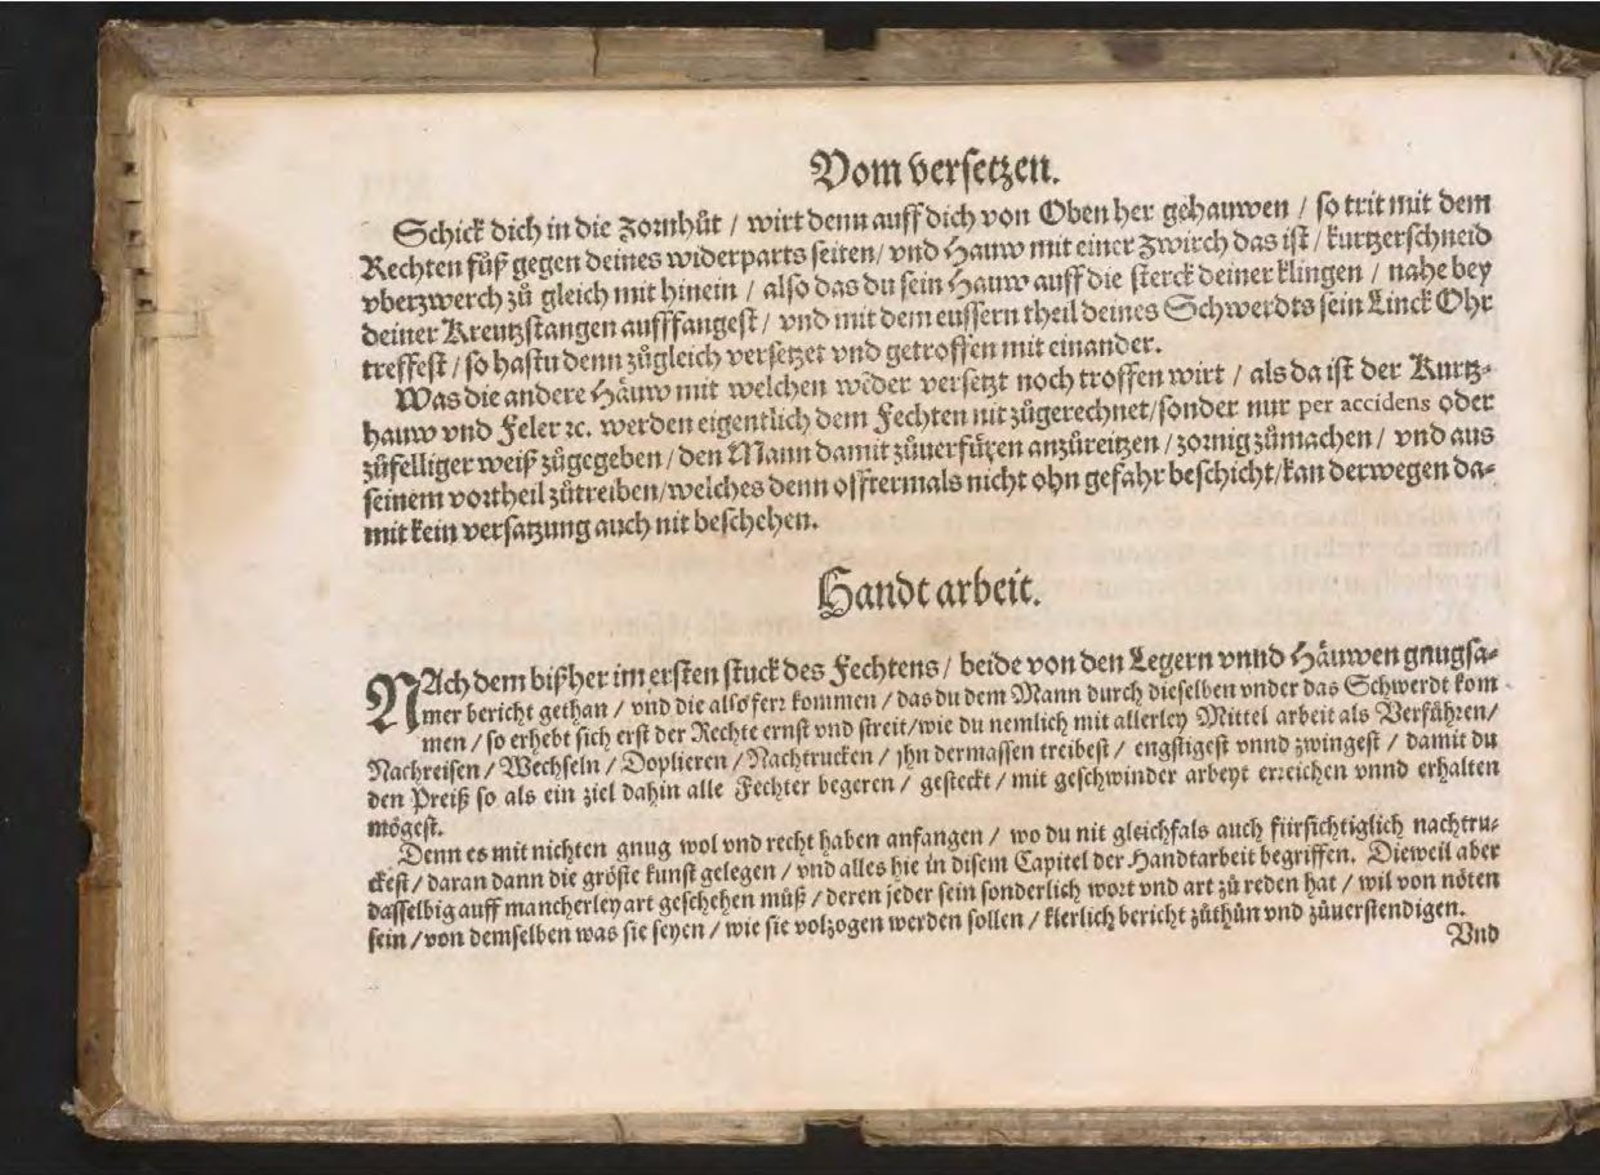 Vom versetzen.
Schick dich in die Zornhůt / wirt denn auff dich von Oben her gehauwen / so trit mit dem
Rechten fůß gegen deines widerparts seiten / vnd Hauw mit einer Zwirch das ist / kurtzerschneid
vberzwerch zů gleich mit hinein / also das du sein Hauw auff die sterck deiner klingen / nahe bey
deiner Kreutzstangen aufffangest / vnd mit dem eussern theil deines Schwerdts sein Linck Ohr
treffest / so hastu denn zůgleich versetzet vnd getroffen mit einander.
Was die andere Häuw mit welchen weder versetzt noch troffen wirt / als da ist der Kurtz-
hauw vnd Feler ꝛc. werden eigentlich dem Fechten nit zůgerechnet / sonder nur per accidens oder
zůfelliger weiß zůgegeben / den Mann damit zůuerfüren anzůreitzen / zornig zůmachen / vnd aus
seinem vortheil zůtreiben / welches denn offtermals nicht ohn gefahr beschicht / kan derwegen da-
mit kein versatzung auch nit beschehen.
Handt arbeit.
NAch dem bißher im ersten stuck des Fechtens / beide von den Legern vnnd Häuwen gnugsa-
mer bericht gethan / vnd die also ferr kommen / das du dem Mann durch dieselben vnder das Schwerdt kom
men / so erhebt sich erst der Rechte ernst vnd streit / wie du nemlich mit allerley Mittel arbeit als Verführen /
Nachreisen / Wechseln / Doplieren / Nachtrucken / jhn dermassen treibest / engstigest vnnd zwingest / damit du
den Preiß so als ein ziel dahin alle Fechter begeren / gesteckt / mit geschwinder arbeyt erreichen vnnd erhalten
mögest.
Denn es mit nichten gnug wol vnd recht haben anfangen / wo du nit gleichfals auch fürsichtiglich nachtru-
ckest / daran dann die gröste kunst gelegen / vnd alles hie in disem Capitel der Handtarbeit begriffen. Dieweil aber
dasselbig auff mancherley art geschehen můß / deren jeder sein sonderlich wort vnd art zů reden hat / wil von nöten
sein / von demselben was sie seyen / wie sie volzogen werden sollen / klerlich bericht zůthůn vnd zůuerstendigen.
Vnd